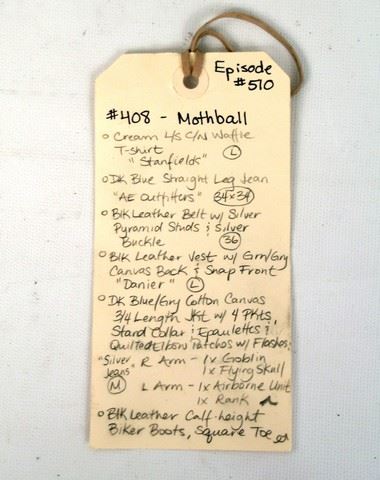 Episode
#510
#408 - Mothball
Cream L/S C/N Waffle
T-shirt
"Stanfields" L
DK Blue Straight Leg Jean
"AE Outfitters" 34x34
Blk Leather Belt w/ Silver
Pyramid Studs & Silver
Buckle 36
Blk Leather Vest w/ Grn/Gry
Canvas Back & Snap Front
"Danier" L
DK Blue/Gry Cotton Canvas
3/4 Length Jkt w/ 4 Pkts,
Stand Collar & Epaulettes &
Quilted Elbow Patches w/ Flashes:
"Silver Jeans" M
R Arm - 1x Goblin
1x Flying Skull
L Arm - 1x Airborne Unit
1x Rank
Blk Leather Calf-height
Biker Boots, Square Toe